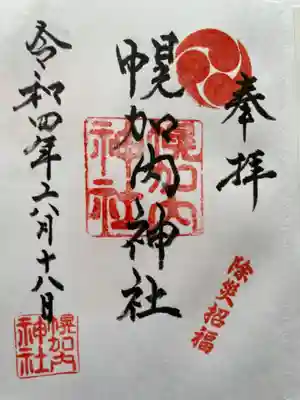 奉拝
幌加内神社
幌加内
神社
除災招福
令和四年六月十八日
幌加内
神社